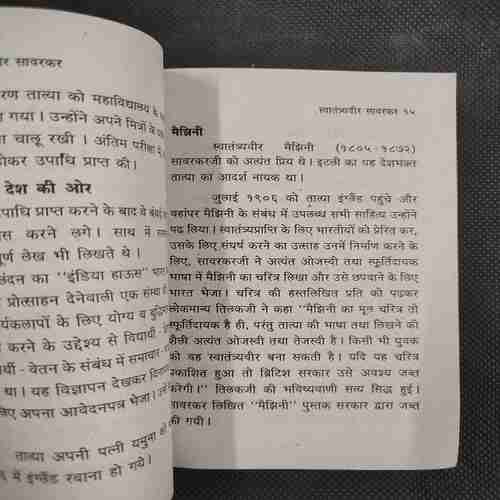 र सावरकर
रण तात्या को महाविद्यालय के
गया । उन्होंने अपने मित्रों के
ा चालू रखी । अंतिम परीक्षा
होकर उपाधि प्राप्त की ।
देश की ओर
पाधि प्राप्त करने के बाद वे
स करने लगे । साथ में
पूर्ण लेख भी लिखते थे ।
लंदन का "इंडिया हाऊस"
प्रोत्साहन देनेवाली एक संस्था
र्यकलापों के लिए योग्य व
करने के उद्देश्य से विद्यार्थी -
र्थी - वेतन के संबंध में समाचार -
था । यह विज्ञापन देखकर
लिए अपना आवेदनपत्र भेजा ।
तात्या अपनी पत्नी यमुना
में इंग्लैंड रवाना हो गये ।
स्वातंत्र्यवीर सावरकर १५
मैझिनी
स्वातंत्र्यवीर मैझिनी (१८०५-१८७२)
सावरकरजी को अत्यंत प्रिय थे । इटली का यह देशभक्त
तात्या का आदर्श नायक था ।
जुलाई १९०६ को तात्या इंग्लैंड पहुंचे और
वहांपर मैझिनी के संबंध में उपलब्ध सभी साहित्य उन्होंने
पढ लिया । स्वातंत्र्यप्राप्ति के लिए भारतीयों को प्रेरित कर,
उसके लिए संघर्ष करने का उत्साह उनमें निर्माण करने के
लिए, सावरकरजी ने अत्यंत ओजस्वी तथा स्फूर्तिदायक
भाषा में मैझिनी का चरित्र लिखा और उसे छपवाने के लिए
भारत भेजा । चरित्र की हस्तलिखित प्रति को पढकर
लोकमान्य तिलकजी ने कहा "मैझिनी का मूल चरित्र तो
स्फूर्तिदायक है ही, परंतु तात्या की भाषा तथा लिखने की
शैली अत्यंत ओजस्वी तथा तेजस्वी है । किसी भी युवक
को वह स्वातंत्र्यवीर बना सकती है । यदि यह चरित्र
प्रकाशित हुआ तो ब्रिटिश सरकार उसे अवश्य जब्त
करेगी ।" तिलकजी की भविष्यवाणी सत्य सिद्ध हुई ।
सावरकर लिखित "मैझिनी" पुस्तक सरकार द्वारा जब्त
की गयी ।